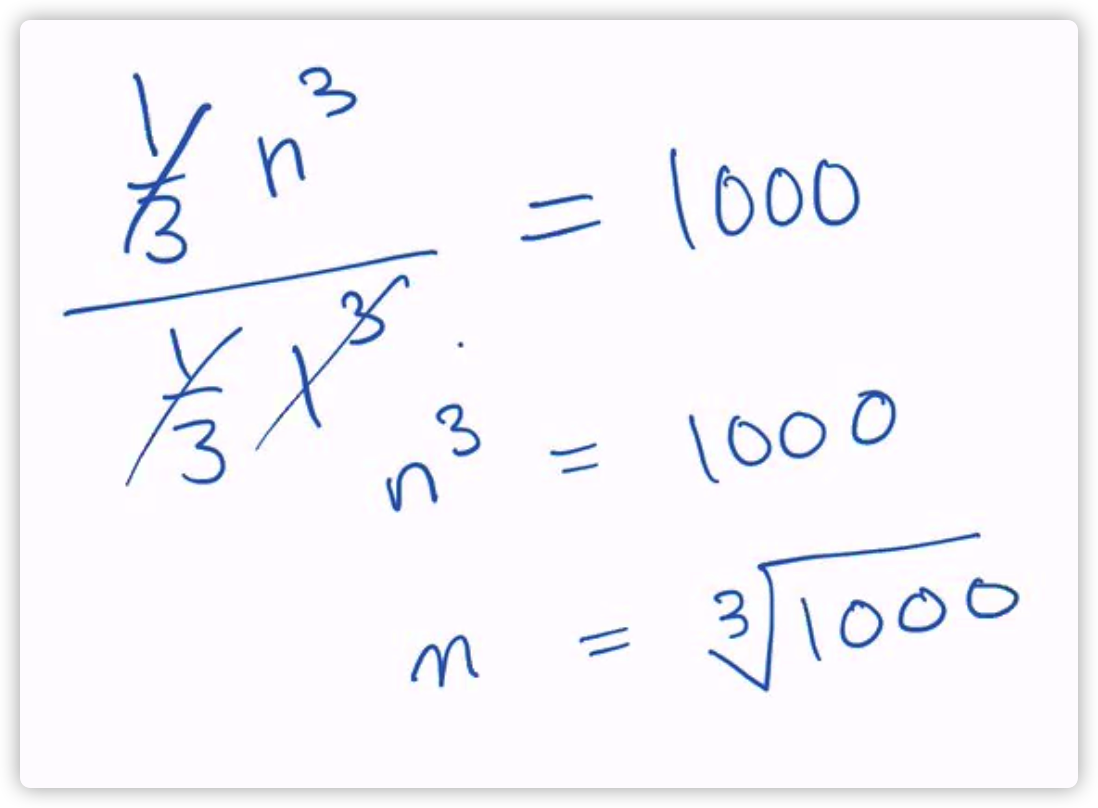 1/3 n³ / 1/3 1³ = 1000
n³ = 1000
n = ³√1000